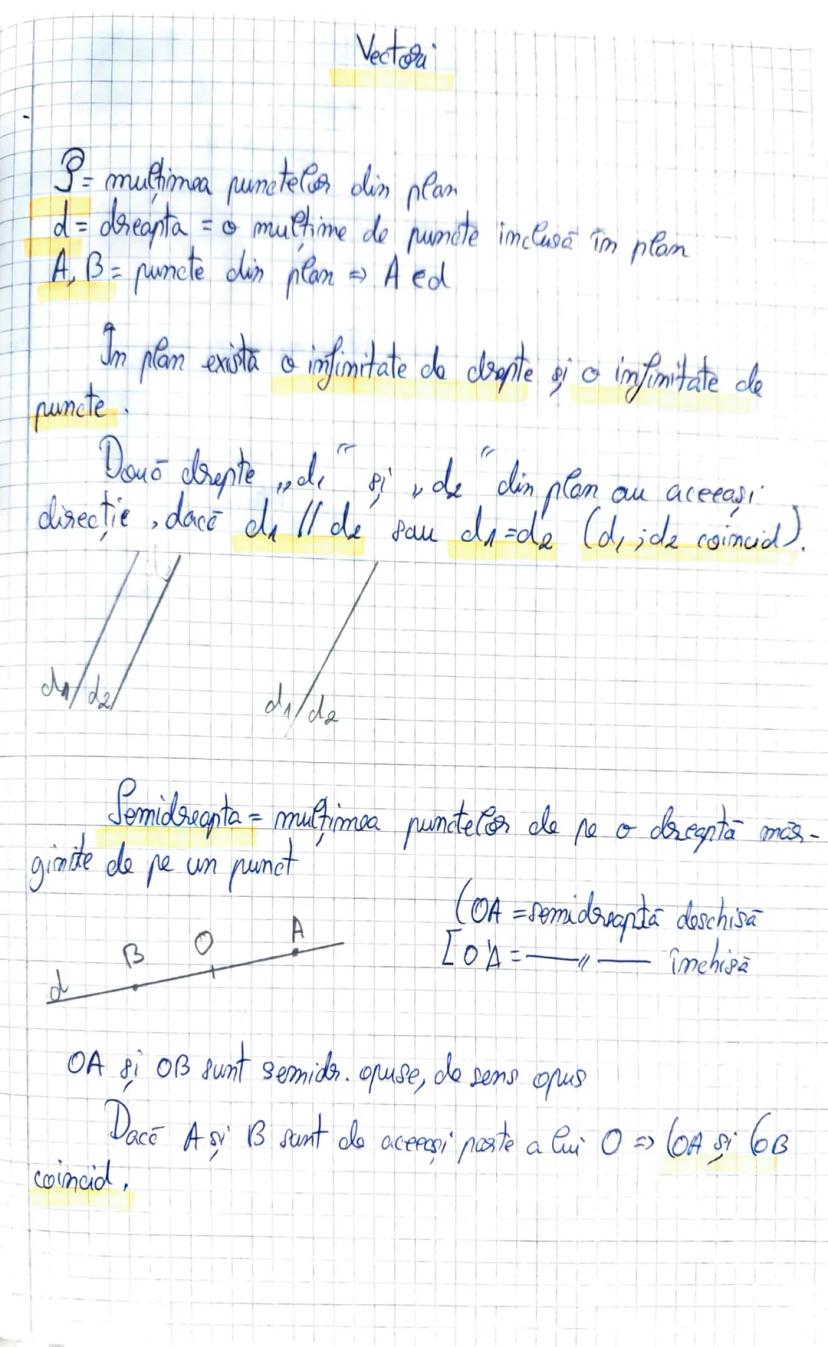 Vectori
𝒫 = mulțimea punctelor din plan
d = dreapta = o mulțime de puncte inclusă în plan
A, B = puncte din plan ⇒ A ∈ d
În plan există o infinitate de drepte și o infinitate de
puncte.
Două drepte „d₁” și „d₂” din plan au aceeași
direcție, dacă d₁ // d₂ sau d₁=d₂ (d₁; d₂ coincid).
d₁ d₂ d₁/d₂
Semidreapta = mulțimea punctelor de pe o dreaptă măr-
ginite de pe un punct
(OA = semidreaptă deschisă
[OA = —〃— închisă
d B O A
OA și OB sunt semidr. opuse, de sens opus
Dacă A și B sunt de aceeași parte a lui O ⇒ (OA și (OB
coincid.